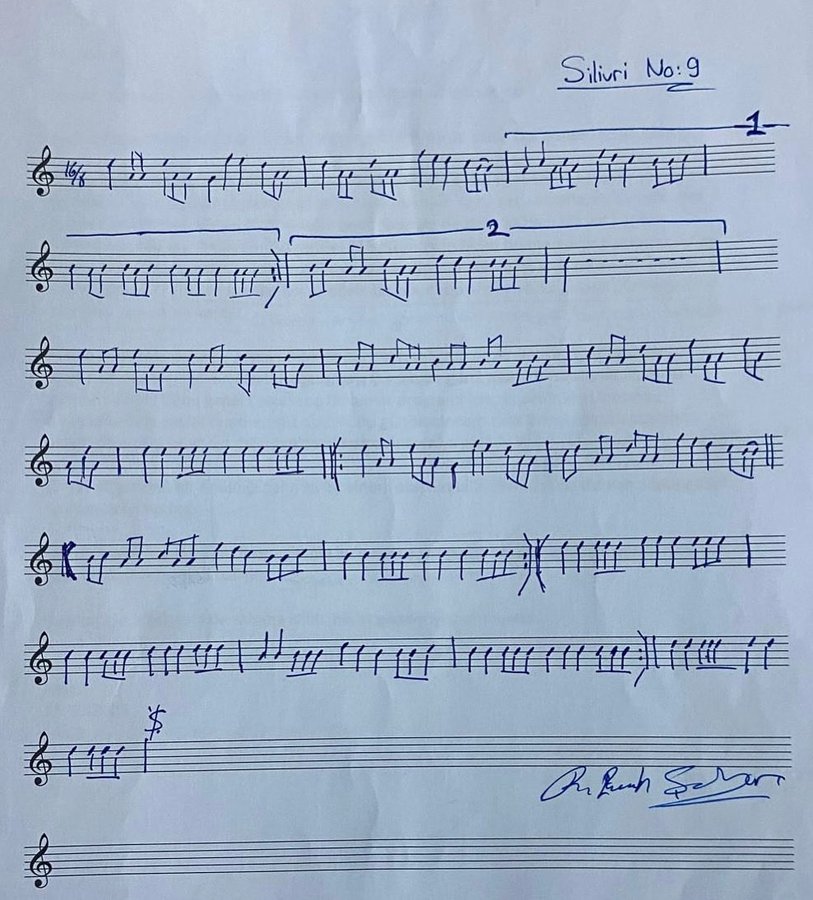 Siliuri No:9
1
16/8
2